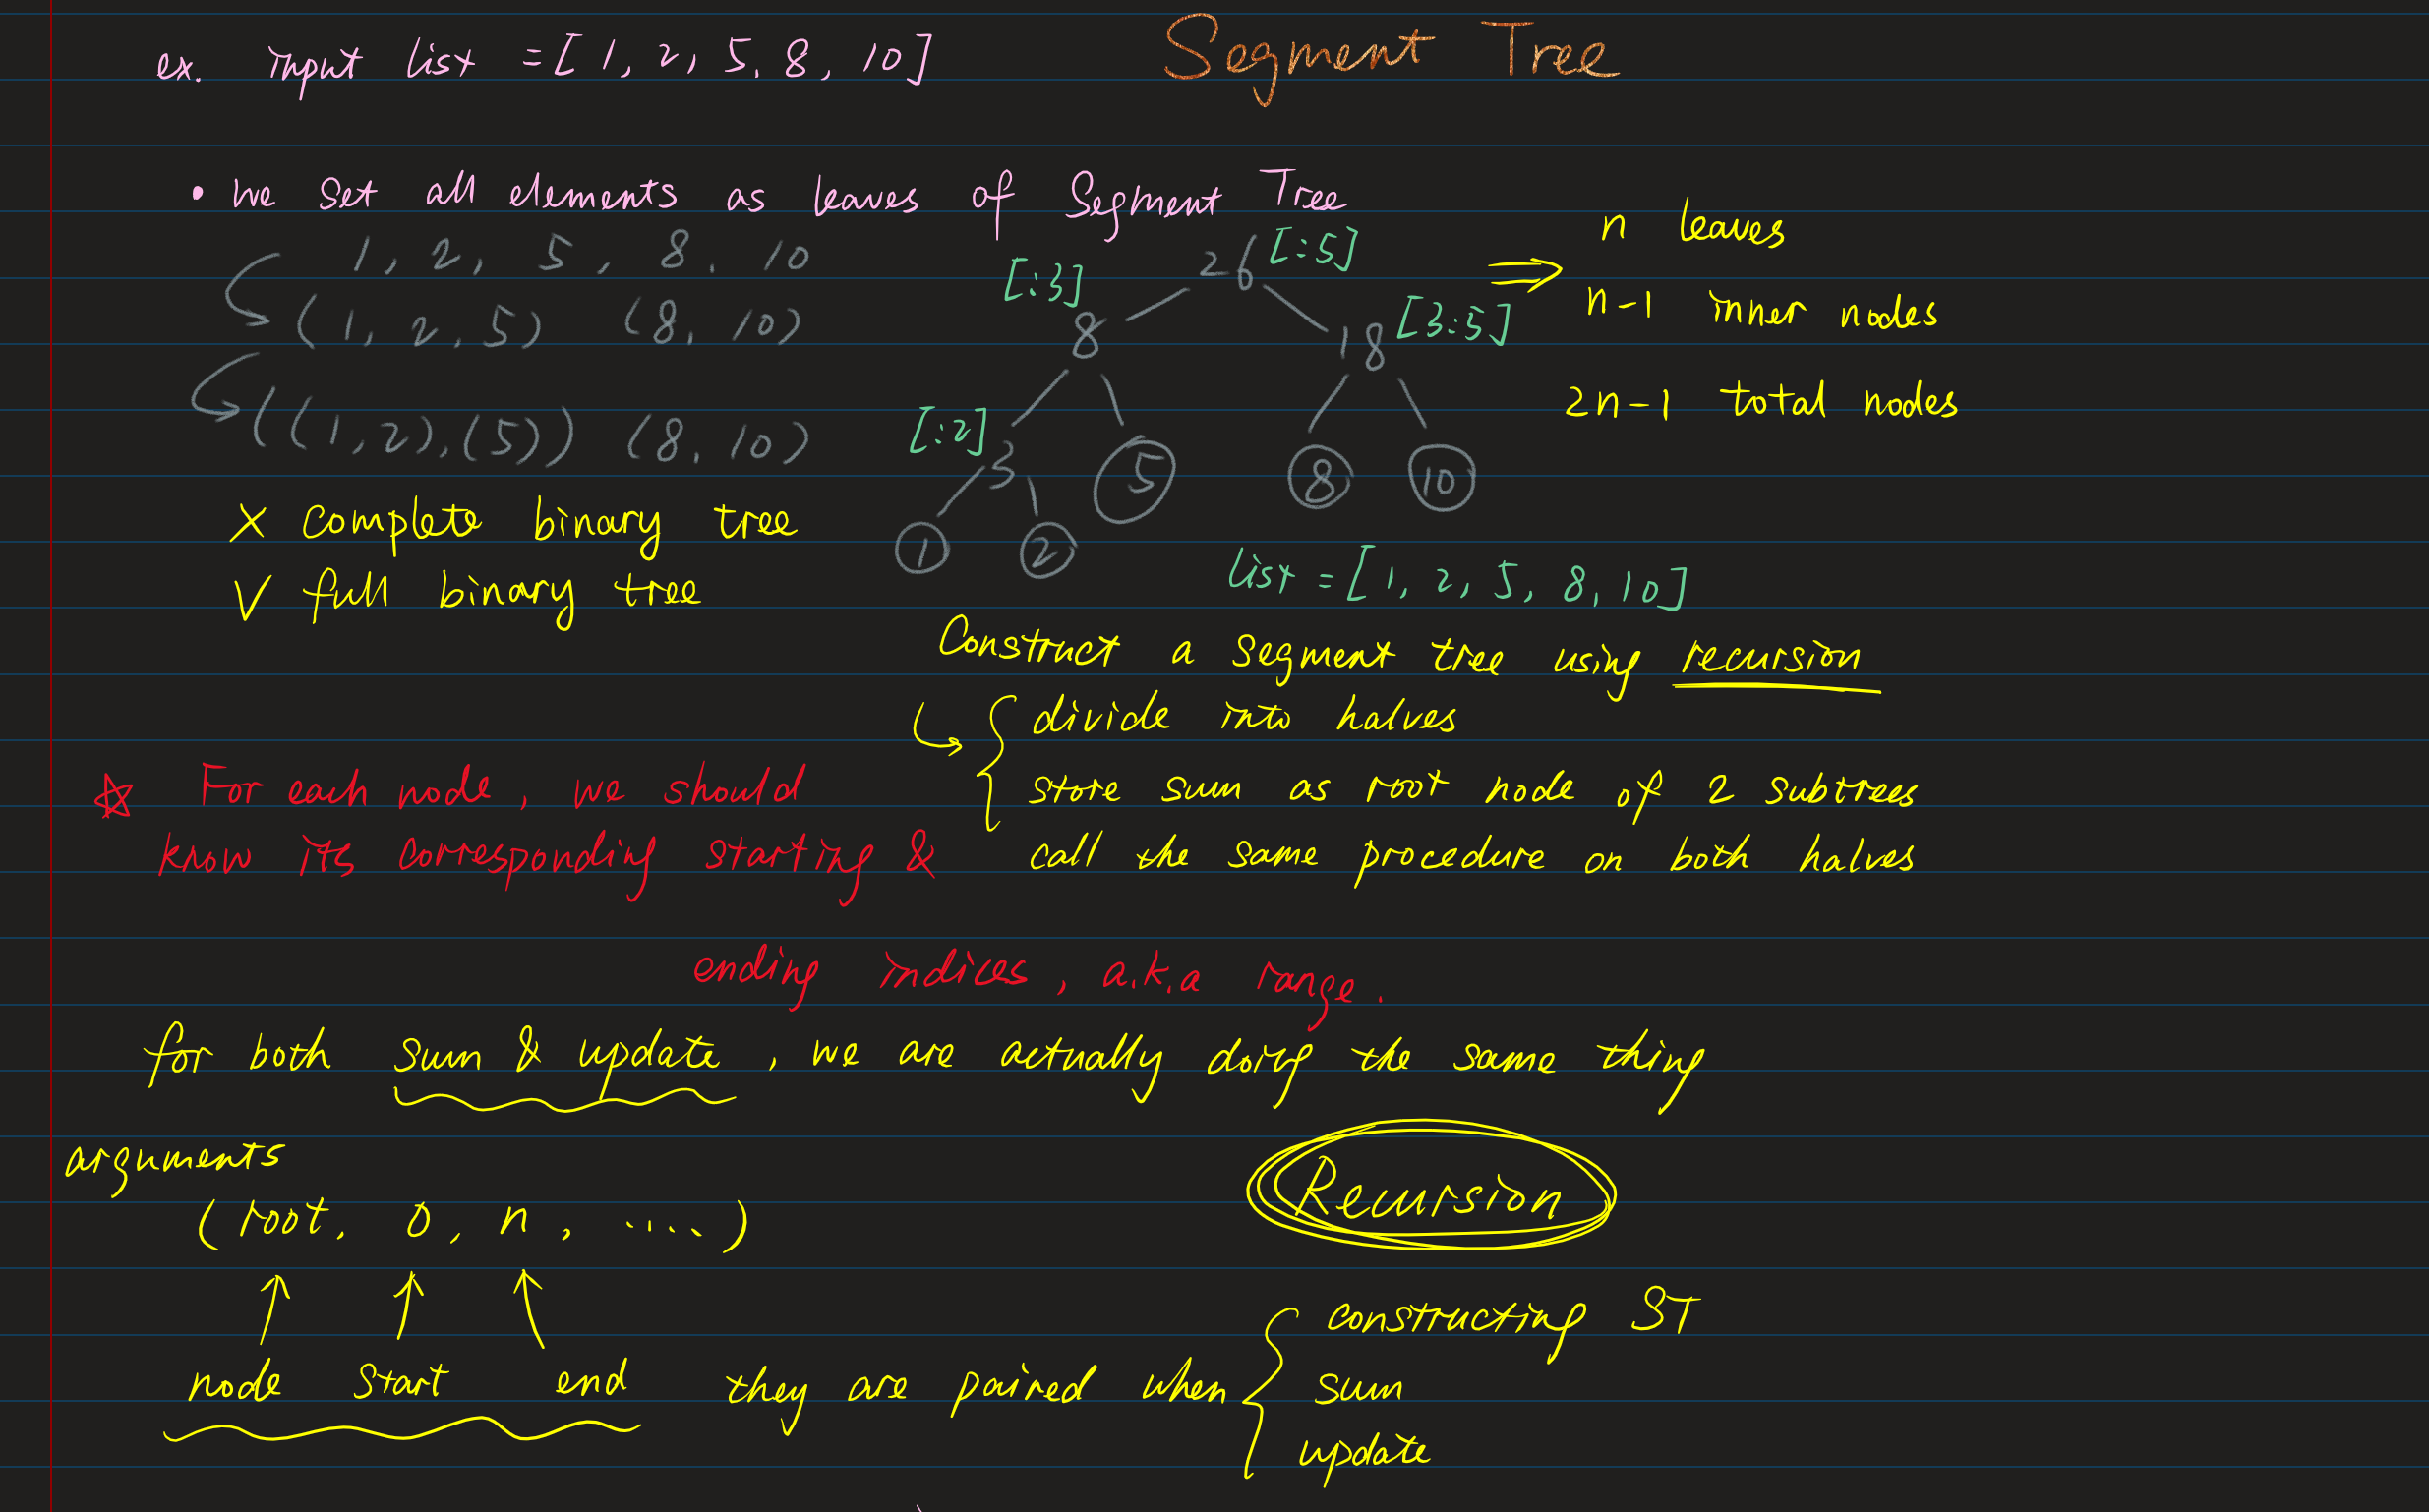 Segment Tree
ex. input list = [1, 2, 5, 8, 10]
• we set all elements as leaves of Segment Tree
1, 2, 5, 8, 10
(1, 2, 5) (8, 10)
((1, 2), (5)) (8, 10)
X complete binary tree
V full binary tree
26 [:5]
[:3] 8
18 [3:5]
[:2] 3
5
8
10
1
2
⇒ n leaves
n-1 inner nodes
2n-1 total nodes
list = [1, 2, 5, 8, 10]
Construct a segment tree using recursion
divide into halves
store sum as root node of 2 subtrees
call the same procedure on both halves
☆ For each node, we should
know its corresponding starting &
ending indices, a.k.a range.
for both sum & update, we are actually doing the same thing
Recursion
arguments
(root, 0, n, ....)
↑ ↑ ↑
node start end they are paired when
constructing ST
sum
update